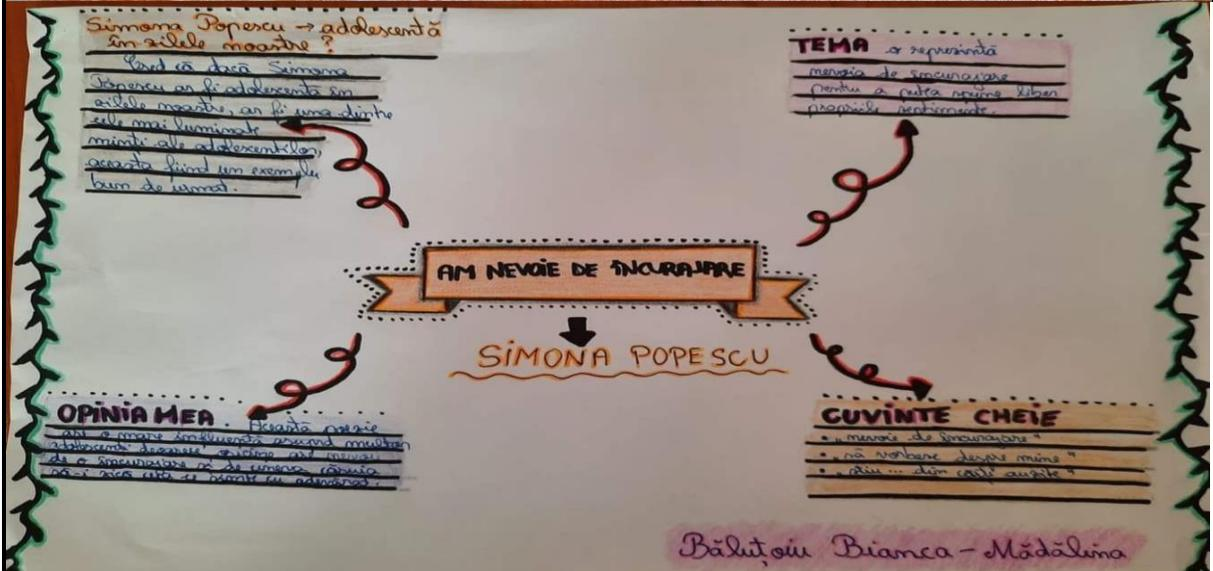 Simona Popescu → adolescentă
în zilele noastre ?
Cred că dacă Simona
Popescu ar fi adolescentă în
zilele noastre, ar fi una dintre
cele mai luminate
minți ale adolescenților,
aceasta fiind un exemplu
bun de urmat.
TEMA o reprezintă
nevoia de încurajare
pentru a putea spune liber
propriile sentimente.
AM NEVOIE DE ÎNCURAJARE
SIMONA POPESCU
OPINIA MEA . Această poezie
are o mare influență asupra multor
adolescenți deoarece, oricine are nevoie
de o încurajare și de cineva căruia
să-i zică ceea ce simte cu adevărat.
CUVINTE CHEIE
• „nevoie de încurajare"
• „să vorbesc despre mine"
• „știu ... din cărți auzite"
Băluțoiu Bianca - Mădălina